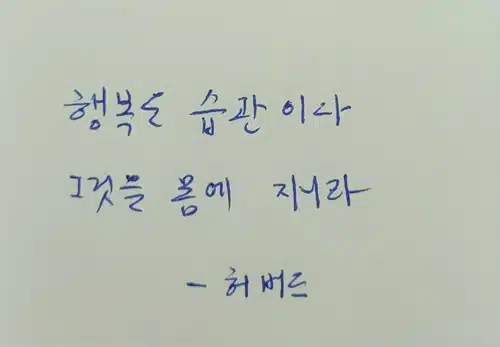 행복도 습관이다
그것을 몸에 지니라
- 허버드